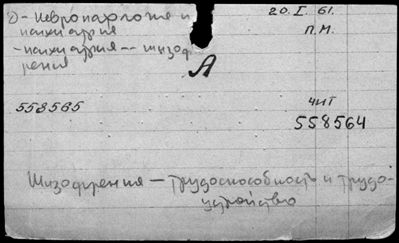 Д- Невропатология и
психиатрия
- психиатрия -- шизо-
френия
20. I. 61.
П.М.
А
558565
ЧИТ
558564
Шизофрения — трудоспособность и трудо-
устройство